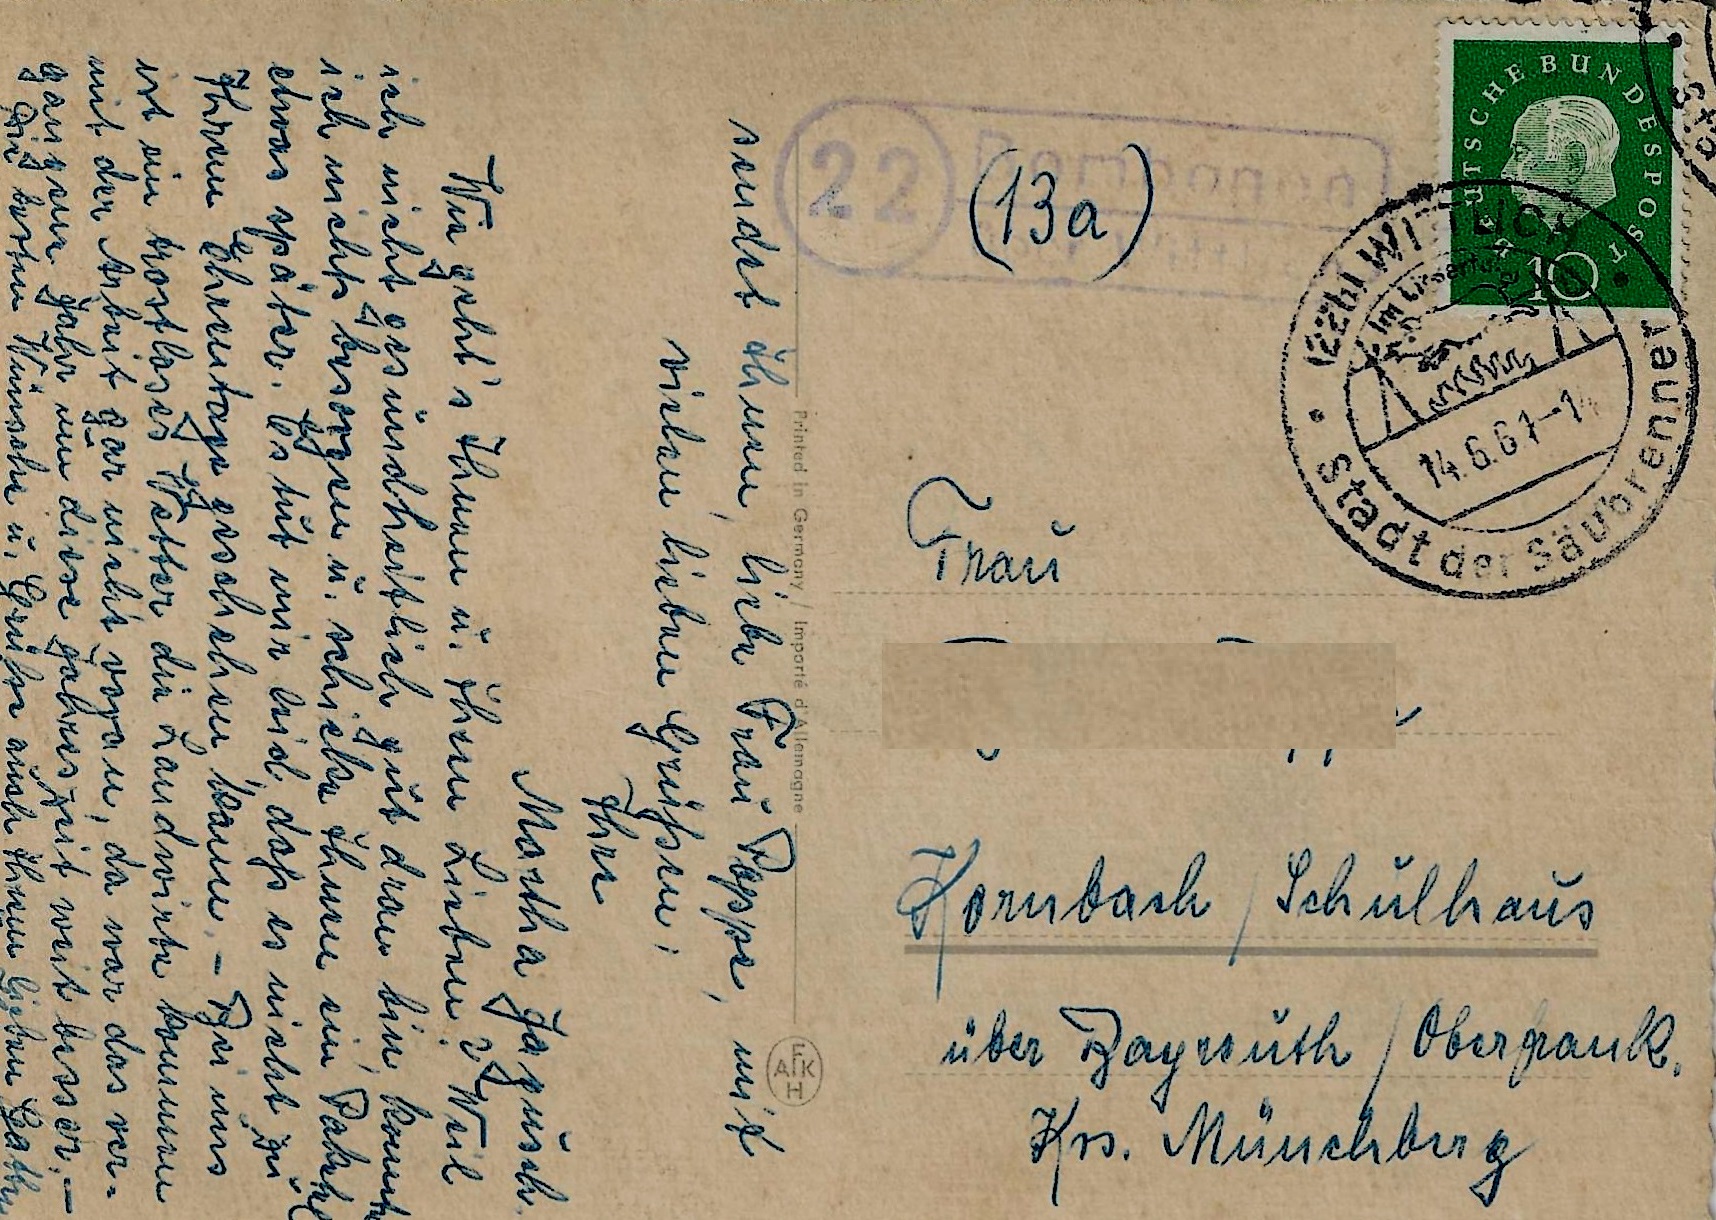 sendet Ihnen, liebe Frau Poppe, mit
vielen lieben Grüßen!
Ihre
Martha Jagusch.
Wie geht's Ihnen u. Ihren Lieben? Weil
ich nicht gesundheitlich gut dran bin, konnte
ich nichts besorgen u. schicke Ihnen ein Paket
etwas später. Es tut mir leid, daß es nicht zu
Ihrem Ehrentage geschehen kann. – Bei uns
ist ein trostloses Wetter, die Landwirte kommen
mit der Arbeit gar nicht voran, da war das ver-
gangene Jahr um diese Jahreszeit weit besser. –
Die besten Wünsche u. Grüße auch Ihrem lieben
Printed in Germany / Importé d'Allemagne
AFKH
22
(13a)
DEUTSCHE BUNDESPOST
10
(22b) WITTLICH
Stadt der Säubrenner
14.6.61-14
Frau
Kornbach / Schulhaus
über Bayreuth / Oberfrank.
Krs. Münchberg